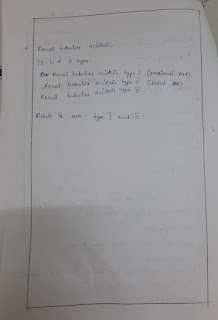 Renal tubular acidosis.
It is of 3 types.
Renal tubular acidosis type I (proximal RTA)
Renal tubular acidosis type II (distal
Renal tubular acidosis type
Rickets is seen type I and II.